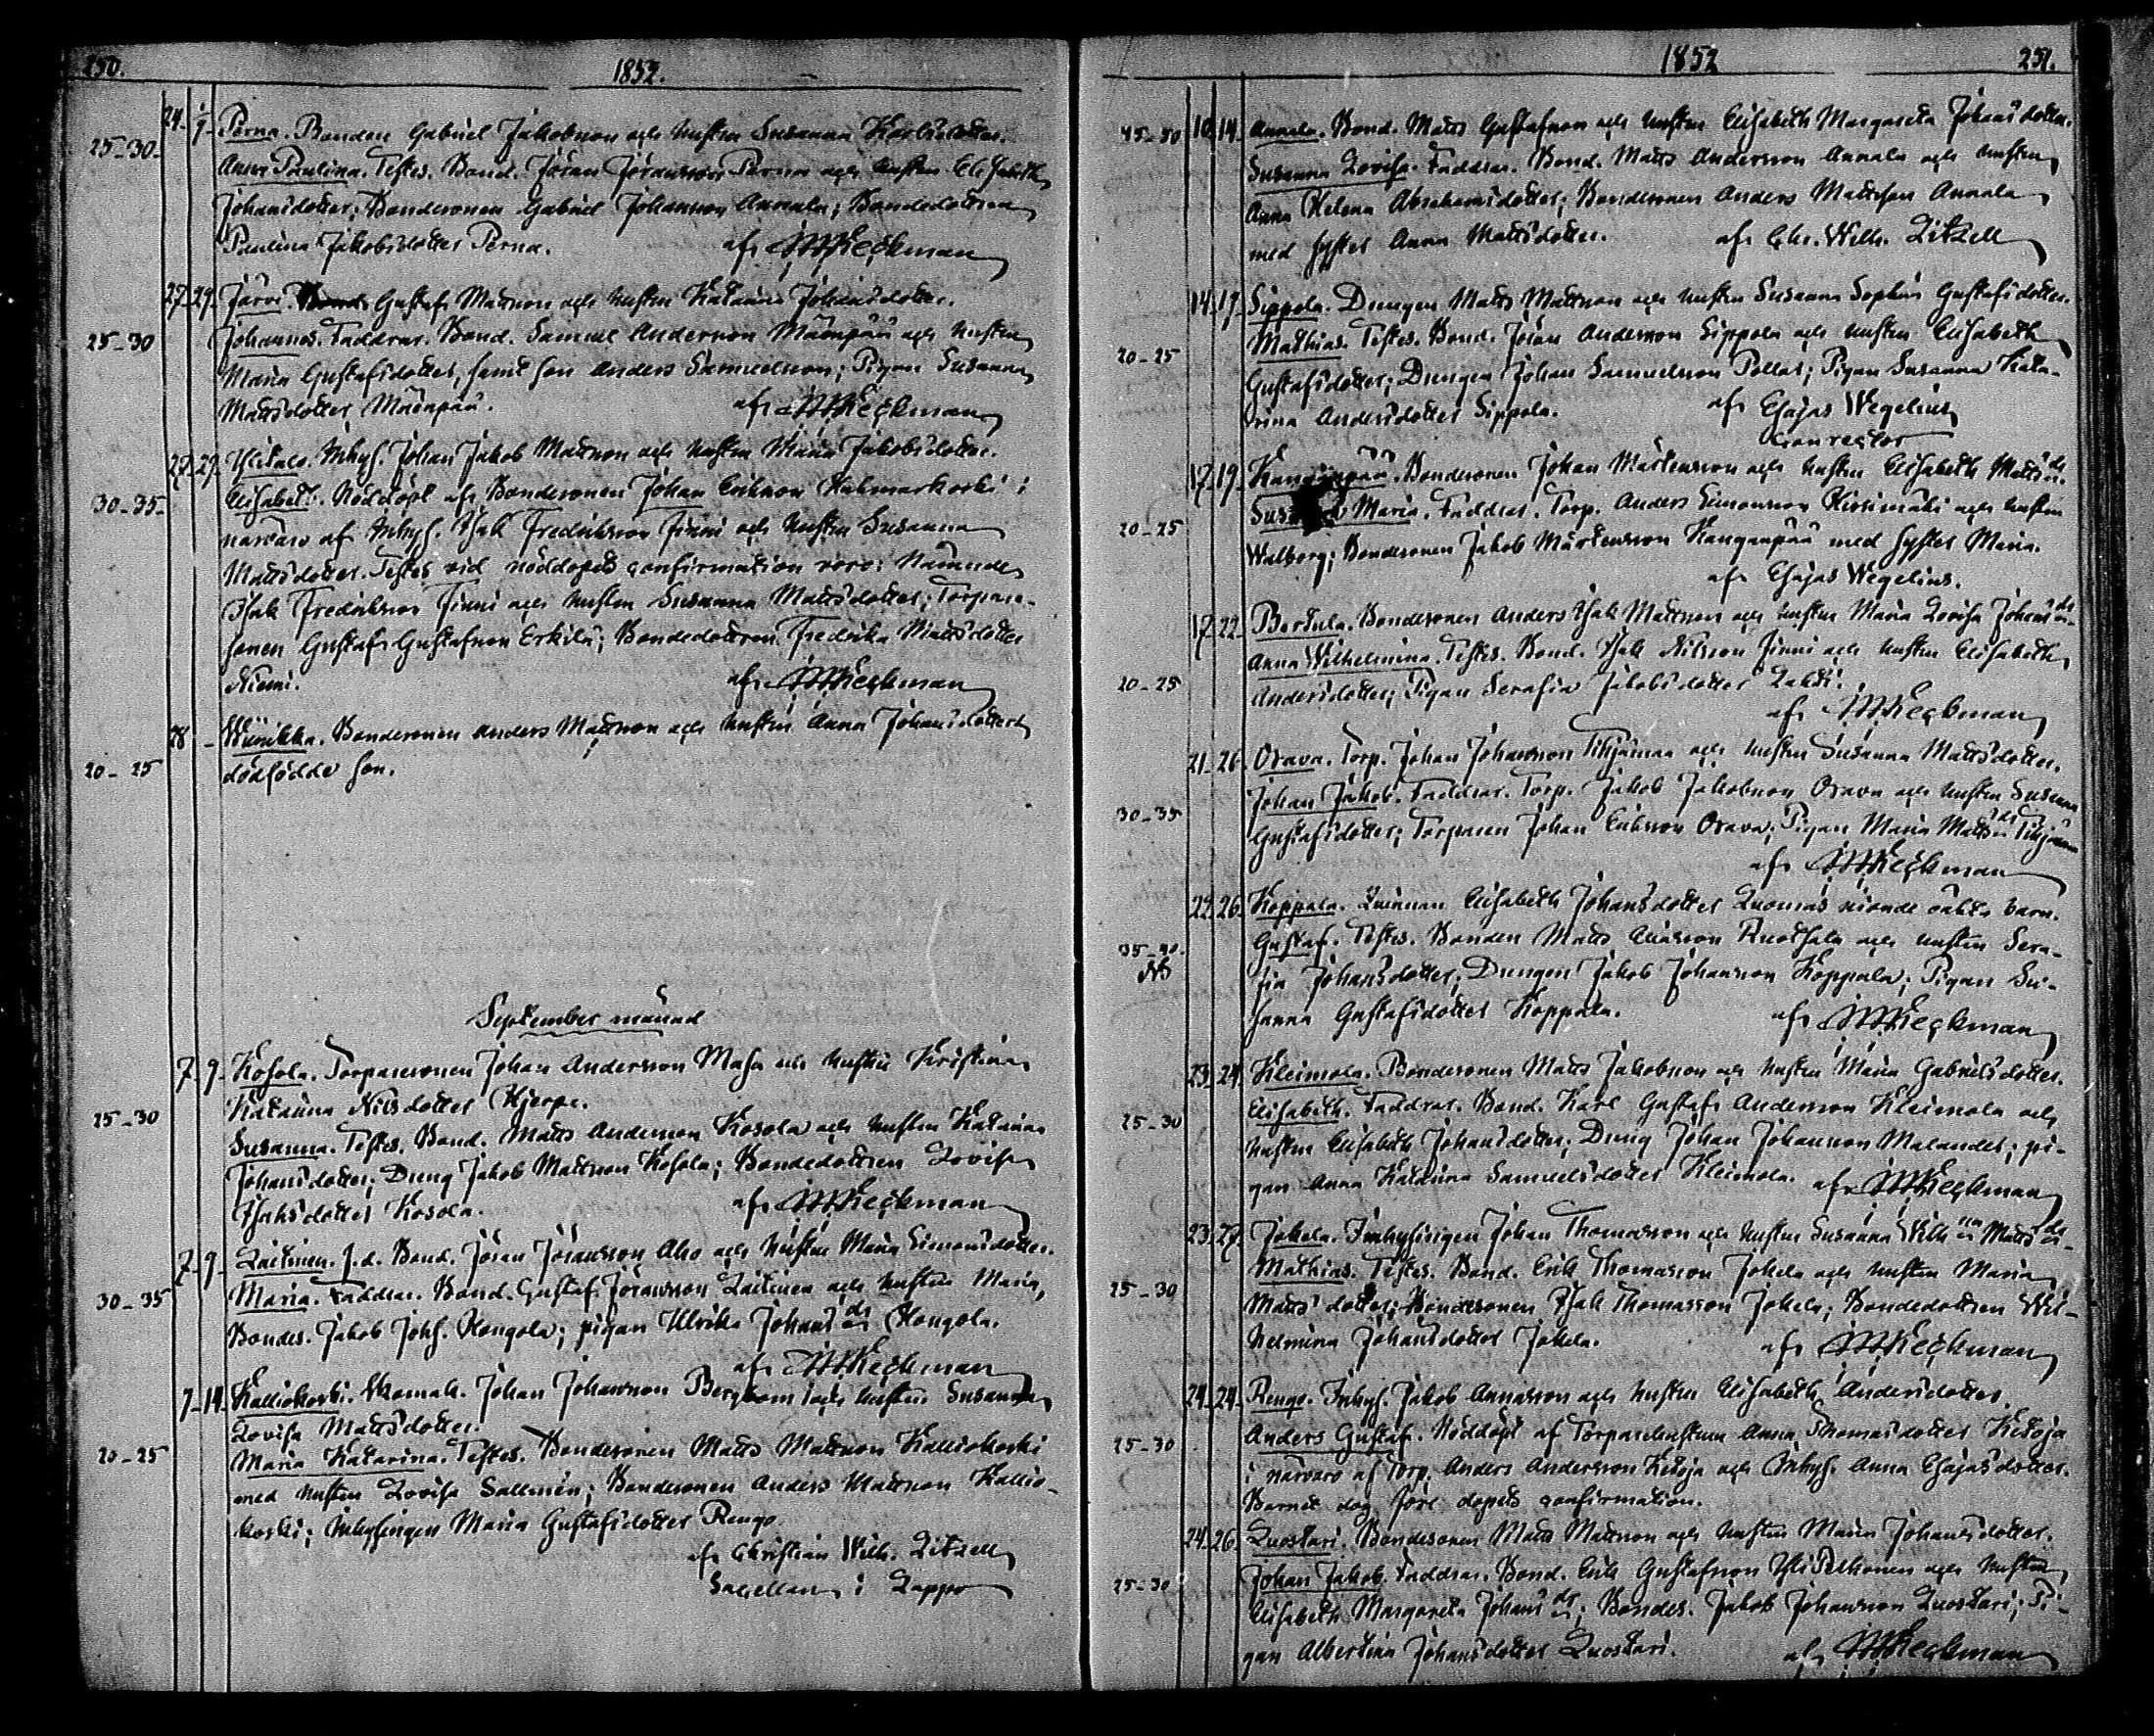 250. 1852.
24. 7. Perna. Bonden Gabriel Jakobsson och hustru Susanna Karlsdotter.
25-30. Anna Paulina. Testes. Bond. Jöran Jöransson Perna och hustru Elisabeth
Johansdotter; Bondesonen Gabriel Johansson Annala; Bondedottren
Paulina Jakobsdotter Perna. af
27. 29. Järvi. Gustaf Mattsson och hustru Katarina Johansdotter.
25-30 Johannes. Faddrar. Bond. Samuel Andersson Mäenpää och hustru
Maria Gustafsdotter, samt son Anders Samuelsson; Pigan Susanna
Mattsdotter Mäenpää. af
27. 29. Ylitalo. Inhys. Johan Jakob Mattsson och hustru Maria Jakobsdotter.
30-35- Elisabeth. Nöddöpt af Bondesonen Johan Eriksson Huhmarkoski i
närvaro af Inhys. Isak Fredriksson Finni och hustru Susanna
Mattsdotter. Testes vid nöddopets confirmation voro: Nämnde
Isak Fredriksson Finni och hustru Susanna Mattsdotter; Torpare-
sonen Gustaf Gustafsson Erkilä; Bondedottren Fredrika Mattsdotter
Niemi. af
28 - Bondesonen Anders Mattsson och hustru Anna Johansdotters
20-25 dödfödde son.
September månad
7. 9. Kosola. Torparesonen Johan Andersson Masa och hustru Kristina
Katarina Nilsdotter Hjerpe.
25-30 Susanna. Testes. Bond. Matts Andersson Kosola och hustru Katarina
Johansdotter; Dräng Jakob Mattsson Kosola; Bondedottren Lovisa
Isaksdotter Kosola. af
7. 9. Laitinen. f.d. Bond. Jöran Jöransson Aho och hustru Maria Simonsdotter.
30-35 Maria. Faddrar. Bond. Gustaf Jöransson Laitinen och hustru Maria,
Bondes. Jakob Johs. Hongola; pigan Ulrika Johansdr Hongola.
af
7-14. Kalliokoski. Skomak. Johan Johansson Bergbom och hustru Susanna
Lovisa Mattsdotter.
20-25 Maria Katarina. Testes. Bondesonen Matts Mattsson Kalliokoski
med hustru Lovisa Sallmén; Bondesonen Anders Mattsson Kallio-
koski; Inhysingen Maria Gustafsdotter Rengo
af Christian Wilh. Litzell
Sacellan i Lappo
1852 251.
45-50 10. 14. Annala. Bond. Matts Gustafsson och hustru Elisabeth Margareta Johansdotter.
Susanna Lovisa. Faddrar. Bond. Matts Andersson Annala och hustru
Anna Helena Abrahamsdotter; Bondesonen Anders Mattsson Annala
med syster Anna Mattsdotter. af Chr. Wilh. Litzell
14. 17. Sippola. Drengen Matts Mattsson och hustru Susanna Sophia Gustafsdotter.
20-25 Mathias. Testes. Bond. Jöran Andersson Sippola och hustru Elisabeth
Gustafsdotter; Drengen Johan Samuelsson Pollas; Pigan Susanna Kata-
rina Andersdotter Sippola. af Esajas Wegelius
Conrector
17. 19. Kanganpää. Bondesonen Johan Mårtensson och hustru Elisabeth Mattsdr.
20-25 Maria. Faddrar. Torp. Anders Simonsson Hirsimäki och hustru
Walborg; Bondesonen Jakob Mårtensson Kanganpää med syster Maria.
af Esajas Wegelius.
17. 22. Bondesonen Anders Isak Mattsson och hustru Maria Lovisa Johansdr.
Anna Wilhelmina. Testes. Bond. Isak Nilsson Finni och hustru Elisabeth
20-25 Andersdotter; Pigan Serafia Jakobsdotter Lahti.
af
21. 26. Orava. Torp. Johan Johansson Tihjämaa och hustru Susanna Mattsdotter.
30-35 Johan Jakob. Faddrar. Torp. Jakob Jakobsson Orava och hustru Susanna
Gustafsdotter; Torparen Johan Eriksson Orava; Pigan Maria Mattsdr
af
22. 26. Koppala. Quinnan Elisabeth Johansdotter Luomas oäkta barn.
35-40. Nb Gustaf. Testes. Bonden Matts Eliasson Ruotsala och hustru Sera-
fia Johansdotter; Drengen Jakob Johansson Koppala; Pigan Su-
sanna Gustafsdotter Koppala. af
23. 24. Kleimola. Bondesonen Matts Jakobsson och hustru Maria Gabrielsdotter.
25-30 Elisabeth. Faddrar. Bond. Karl Gustaf Andersson Kleimola och
hustru Elisabeth Johansdotter; Dreng Johan Johansson Malander; pi-
gan Anna Katarina Samuelsdotter Kleimola. af
23. 27. Jokela. Inhysingen Johan Thomasson och hustru Susanna Wilhna Mattsdr.
25-30 Mathias. Testes. Bond. Erik Thomasson Jokela och hustru Maria
Mattsdotter; Bondesonen Isak Thomasson Jokela; Bondedottren Wil-
helmina Johansdotter Jokela. af
24. 24. Rengo. Inhys. Jakob Annasson och hustru Elisabeth Andersdotter.
25-30 Anders Gustaf. Nöddöpt af Torparehustrun Anna Thomasdotter Ketoja
i närvaro af Torp. Anders Andersson Ketoja och Inhys. Anna Esajasdotter.
Barnet dog före dopets confirmation.
24. 26. Luostari. Bondesonen Matts Mattsson och hustru Maria Johansdotter.
25-30 Johan Jakob. Faddrar. Bond. Erik Gustafsson Yli Pelkonen och hustru
Elisabeth Margareta Johansdr; Bondes. Jakob Johansson Luostari; Pi-
gan Albertina Johansdotter Luostari. af